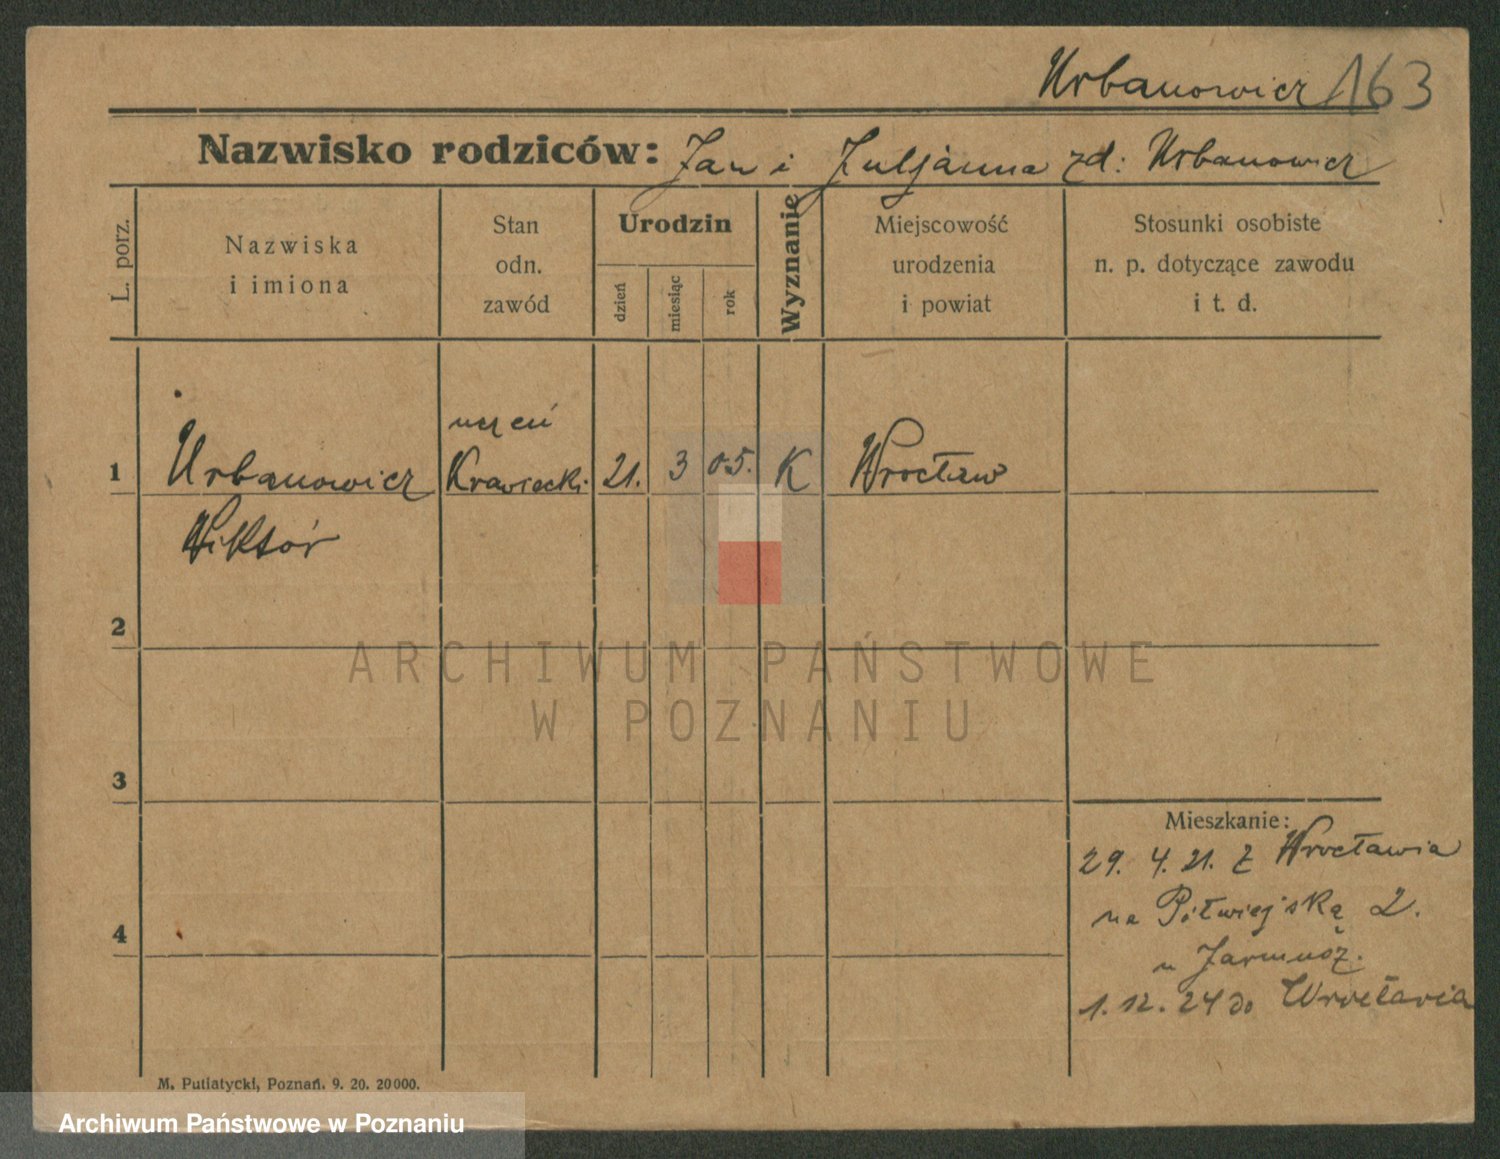 Urbanowicz 163
Nazwisko rodziców: Jan i Juljanna zd: Urbanowicz
L. porz.
Nazwiska
i imiona
Stan
odn.
zawód
Urodzin
dzień
miesiąc
rok
Wyznanie
Miejscowość
urodzenia
i powiat
Stosunki osobiste
n. p. dotyczące zawodu
i t. d.
uczeń
1 Urbanowicz Krawiecki 21. 3 05. K Wrocław
Wiktór
2
3
4
Mieszkanie:
29. 4. 21. z Wrocławia
na Półwiejską 2.
u Jarmuż.
1. 12. 24 do Wrocławia
M. Putiatycki, Poznań. 9. 20. 20000.
ARCHIWUM PAŃSTWOWE
W POZNANIU
Archiwum Państwowe w Poznaniu